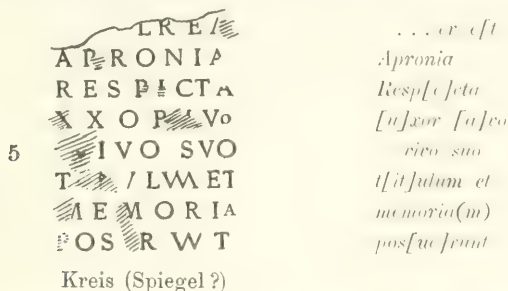 LREI
APRONIA
RESPICTA
XXOP VO
5 IVO SVO
T ET
MEMORIA
POS R T
Kreis (Spiegel?)
Apronia
Resp[e]cta
[u]xor [a]vo
vivo suo
t[it]ulum et
memoria(m)
pos[ue]runt